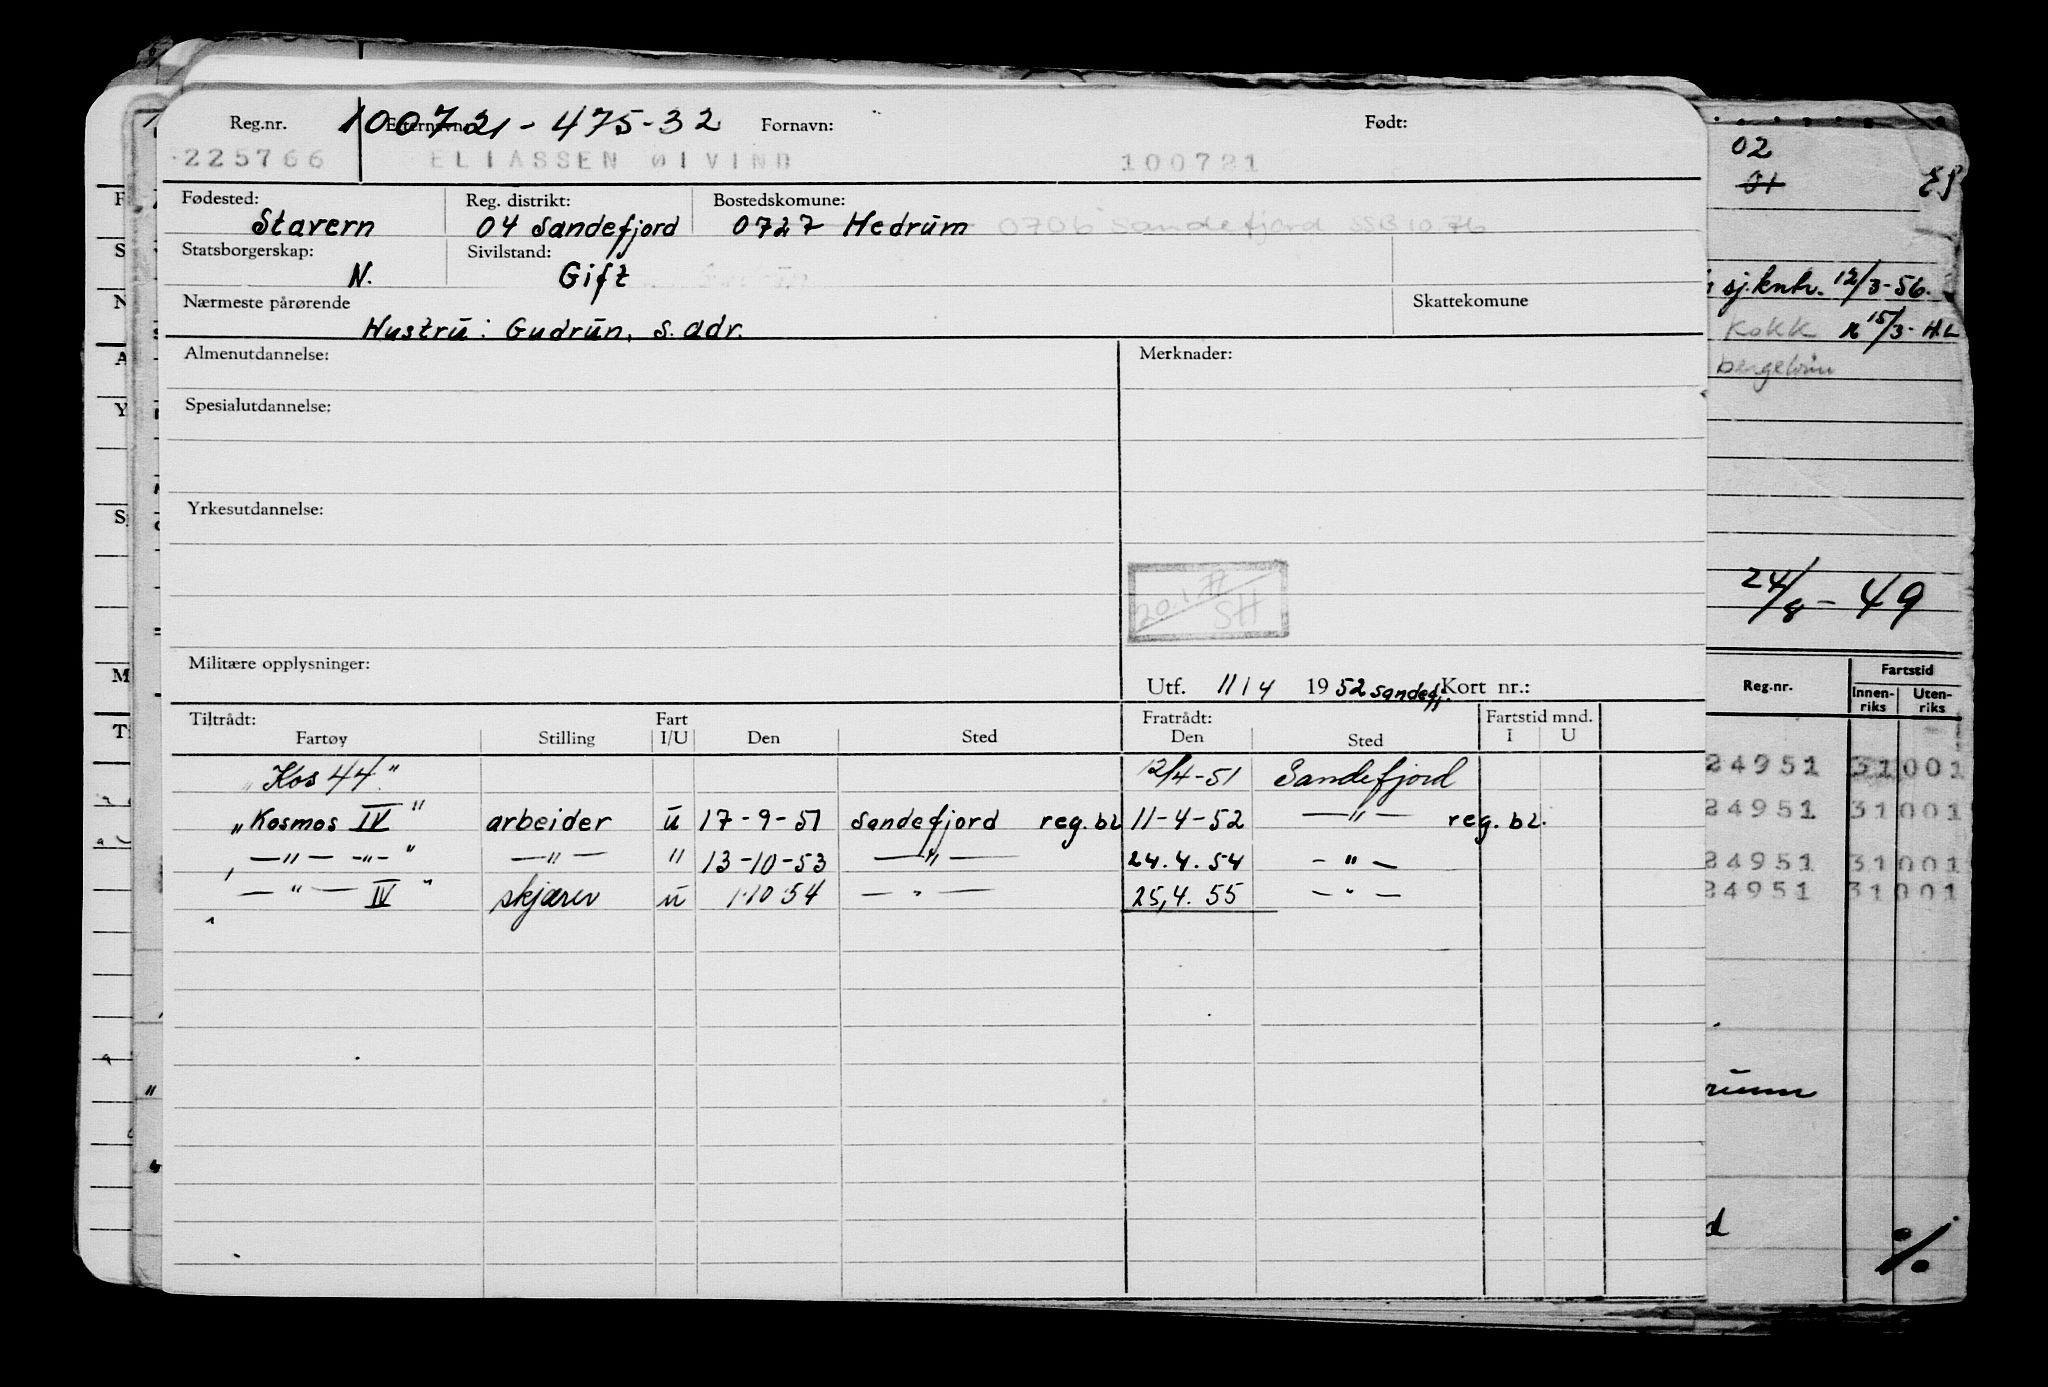 Reg.nr. Etternavn: 100721-475-32 Fornavn: Født:
225766 ELIASSEN ØIVIND 100721
Fødested: Reg. distrikt: Bostedskomune:
Stavern 04 Sandefjord 0727 Hedrum 0706 Sandefjord SSB 10 76
Statsborgerskap: Sivilstand:
N. Gift
Nærmeste pårørende Skattekomune
Hustru: Gudrun, s. adr.
Almenutdannelse: Merknader:
Spesialutdannelse:
Yrkesutdannelse:
SH
Militære opplysninger:
Utf. 11/4 1952 Sandefj. Kort nr.:
Tiltrådt: Fart Fratrådt: Fartstid mnd.
Fartøy Stilling I/U Den Sted Den Sted I U
"Kos 44" 12/4-51 Sandefjord
"Kosmos IV" arbeider u 17-9-51 Sandefjord reg.bl. 11-4-52 —"— reg.bl.
"—"— -"-" —"— " 13-10-53 —"— 24.4.54 -"-
"—"— IV" skjærer u 1.10.54 —"— 25.4.55 -"-
02
01
sj.kntr. 12/3-56.
Kokk 15/3- H.L
24/8-49
Reg.nr. Fartstid
Innenriks Utenriks
24951 31001
24951 31001
24951 31001
24951 31001
%
F
S
N
A
Y
S
M
T